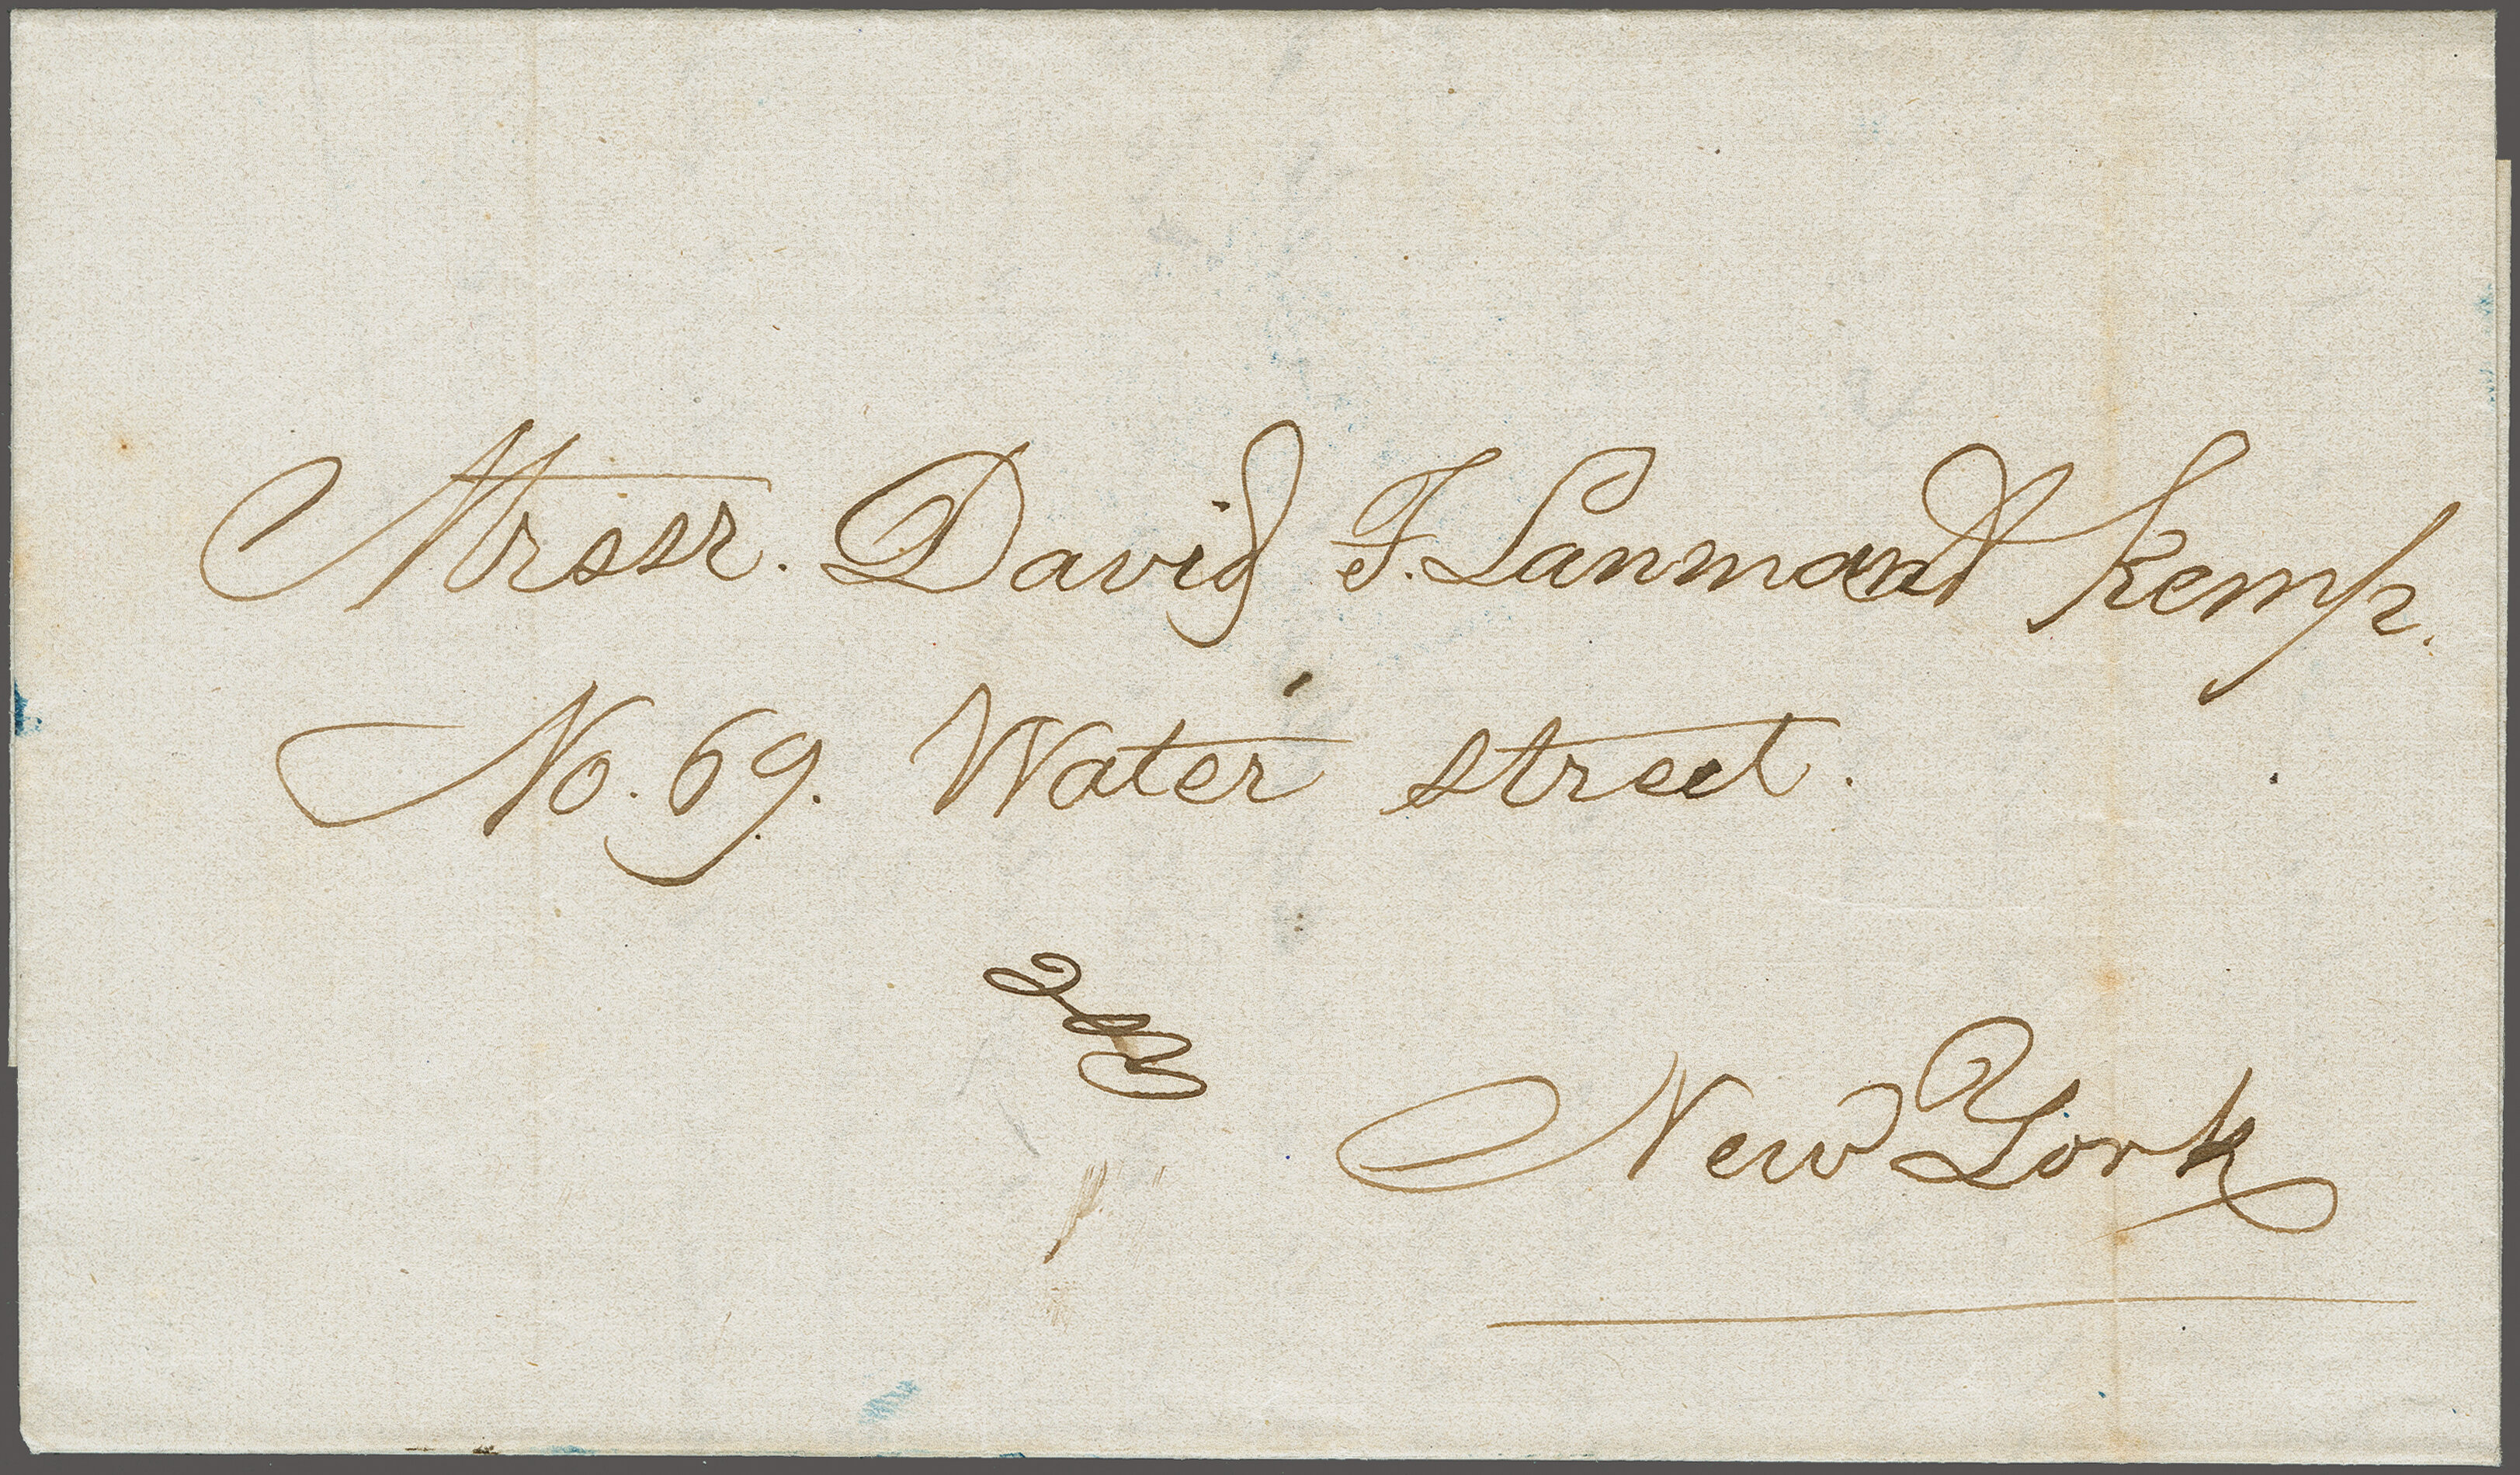 Mrssr. David F. Lanmant Kemp.
No. 69. Water street.
New York